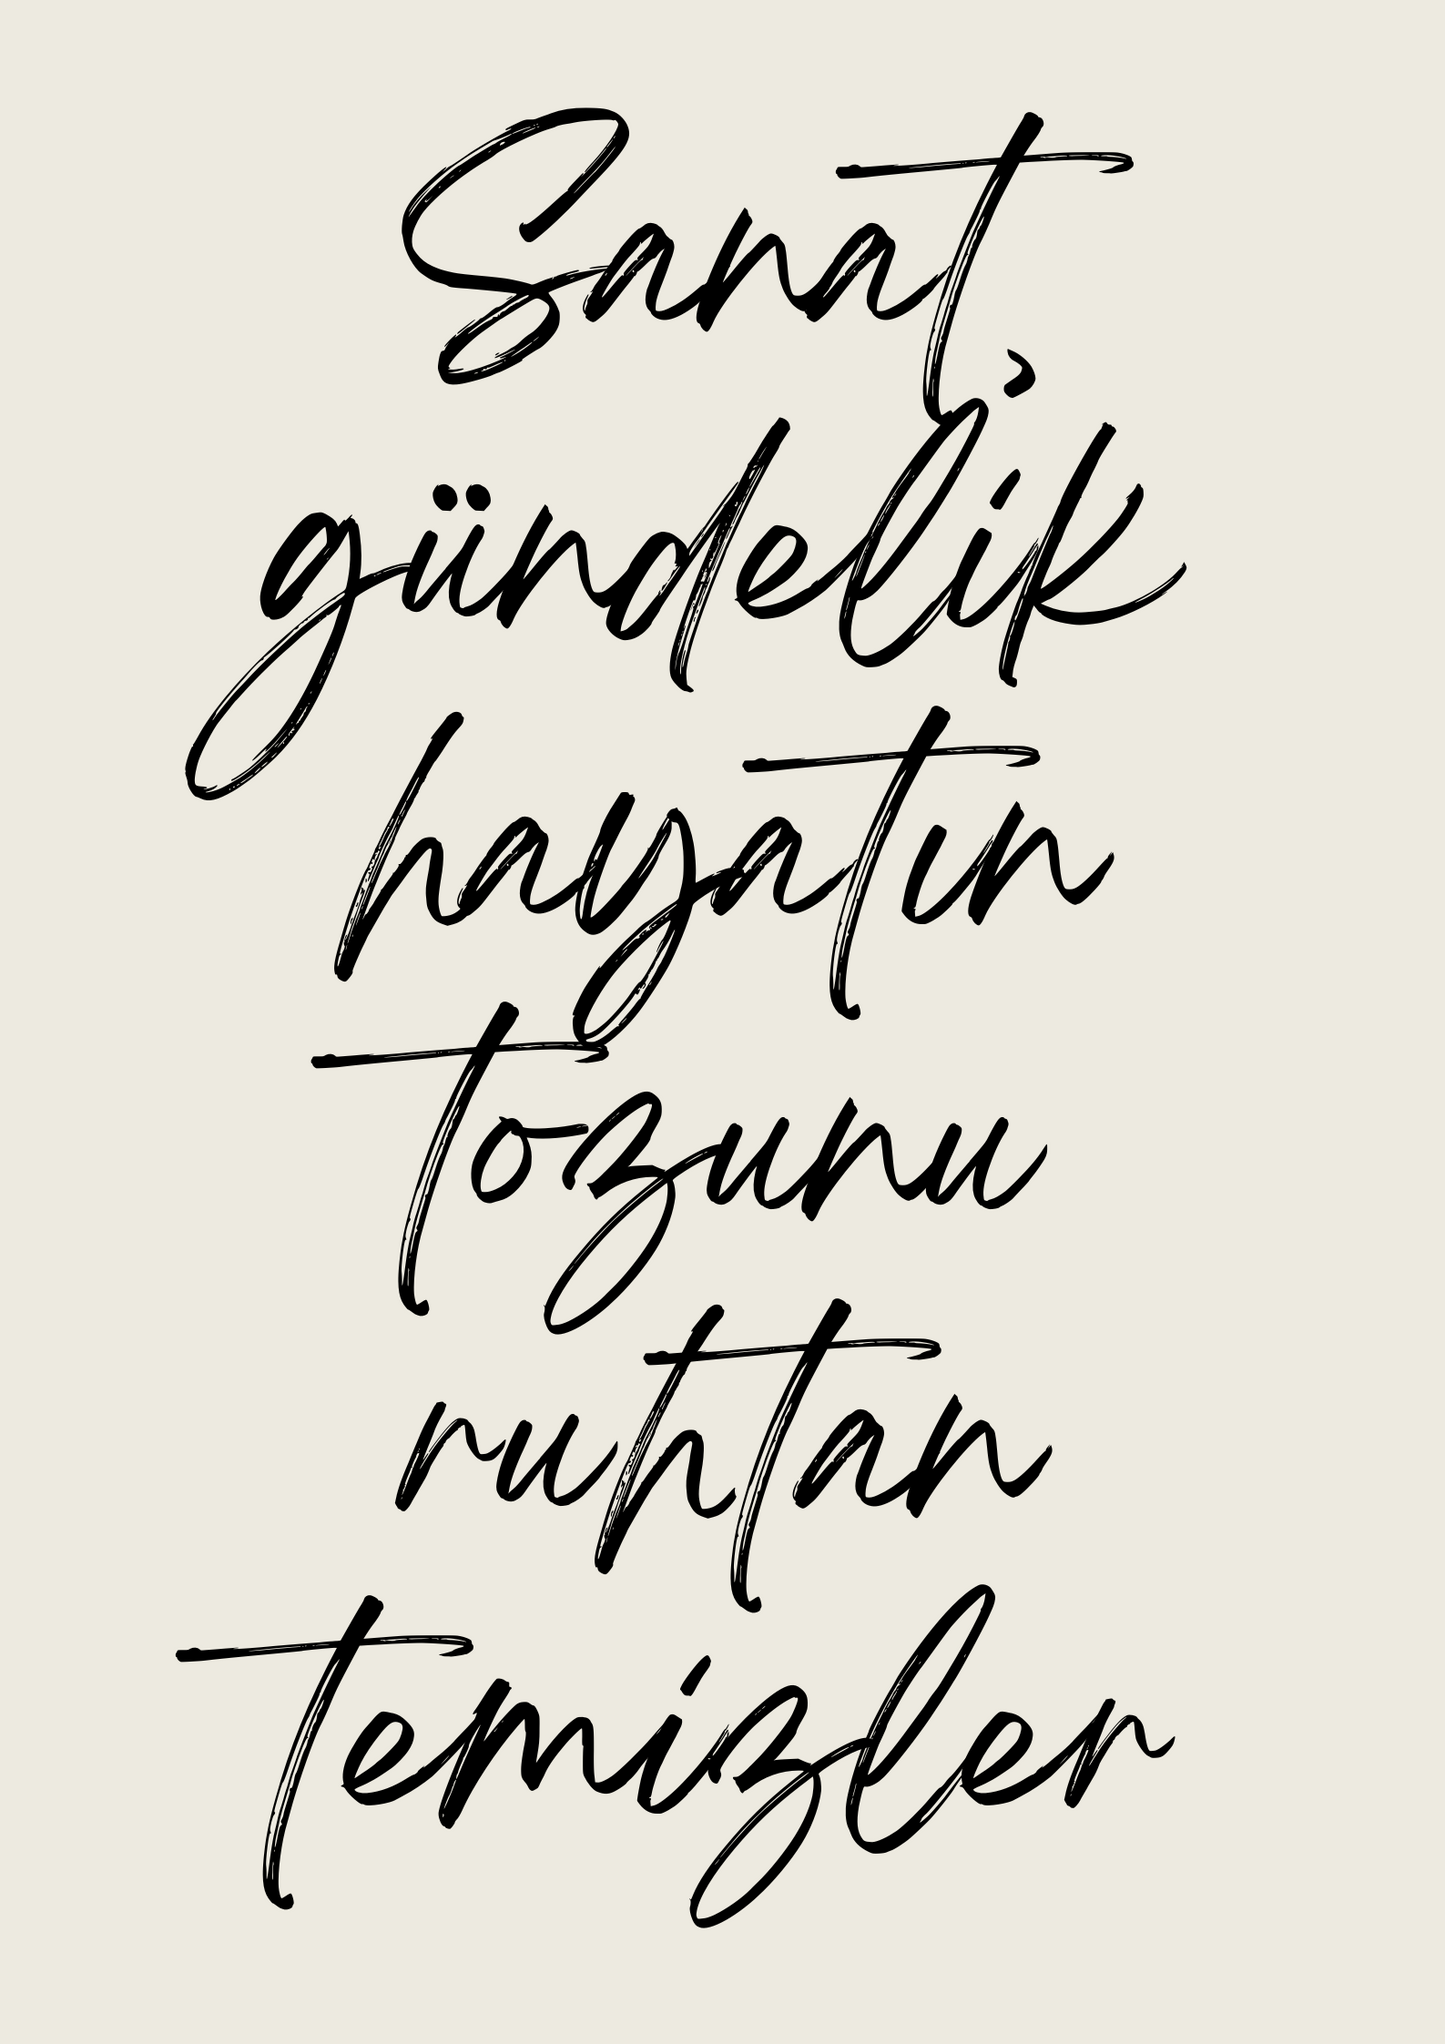 Sanat,
gündelik
hayatın
tozunu
ruhtan
temizler